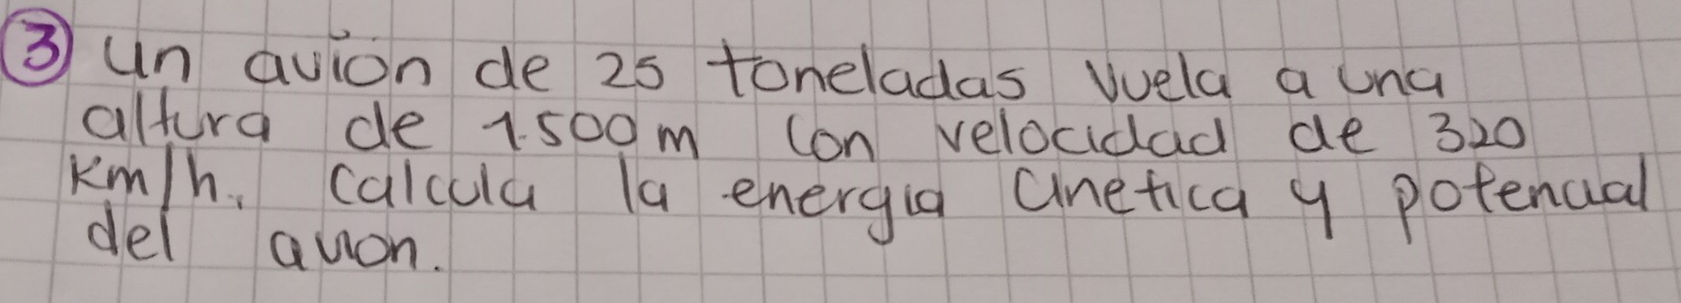 ③ un avión de 25 toneladas vuela a una
altura de 1.500 m con velocidad de 320
Km/h. calcula la energia cinetica y potencial
del avion.